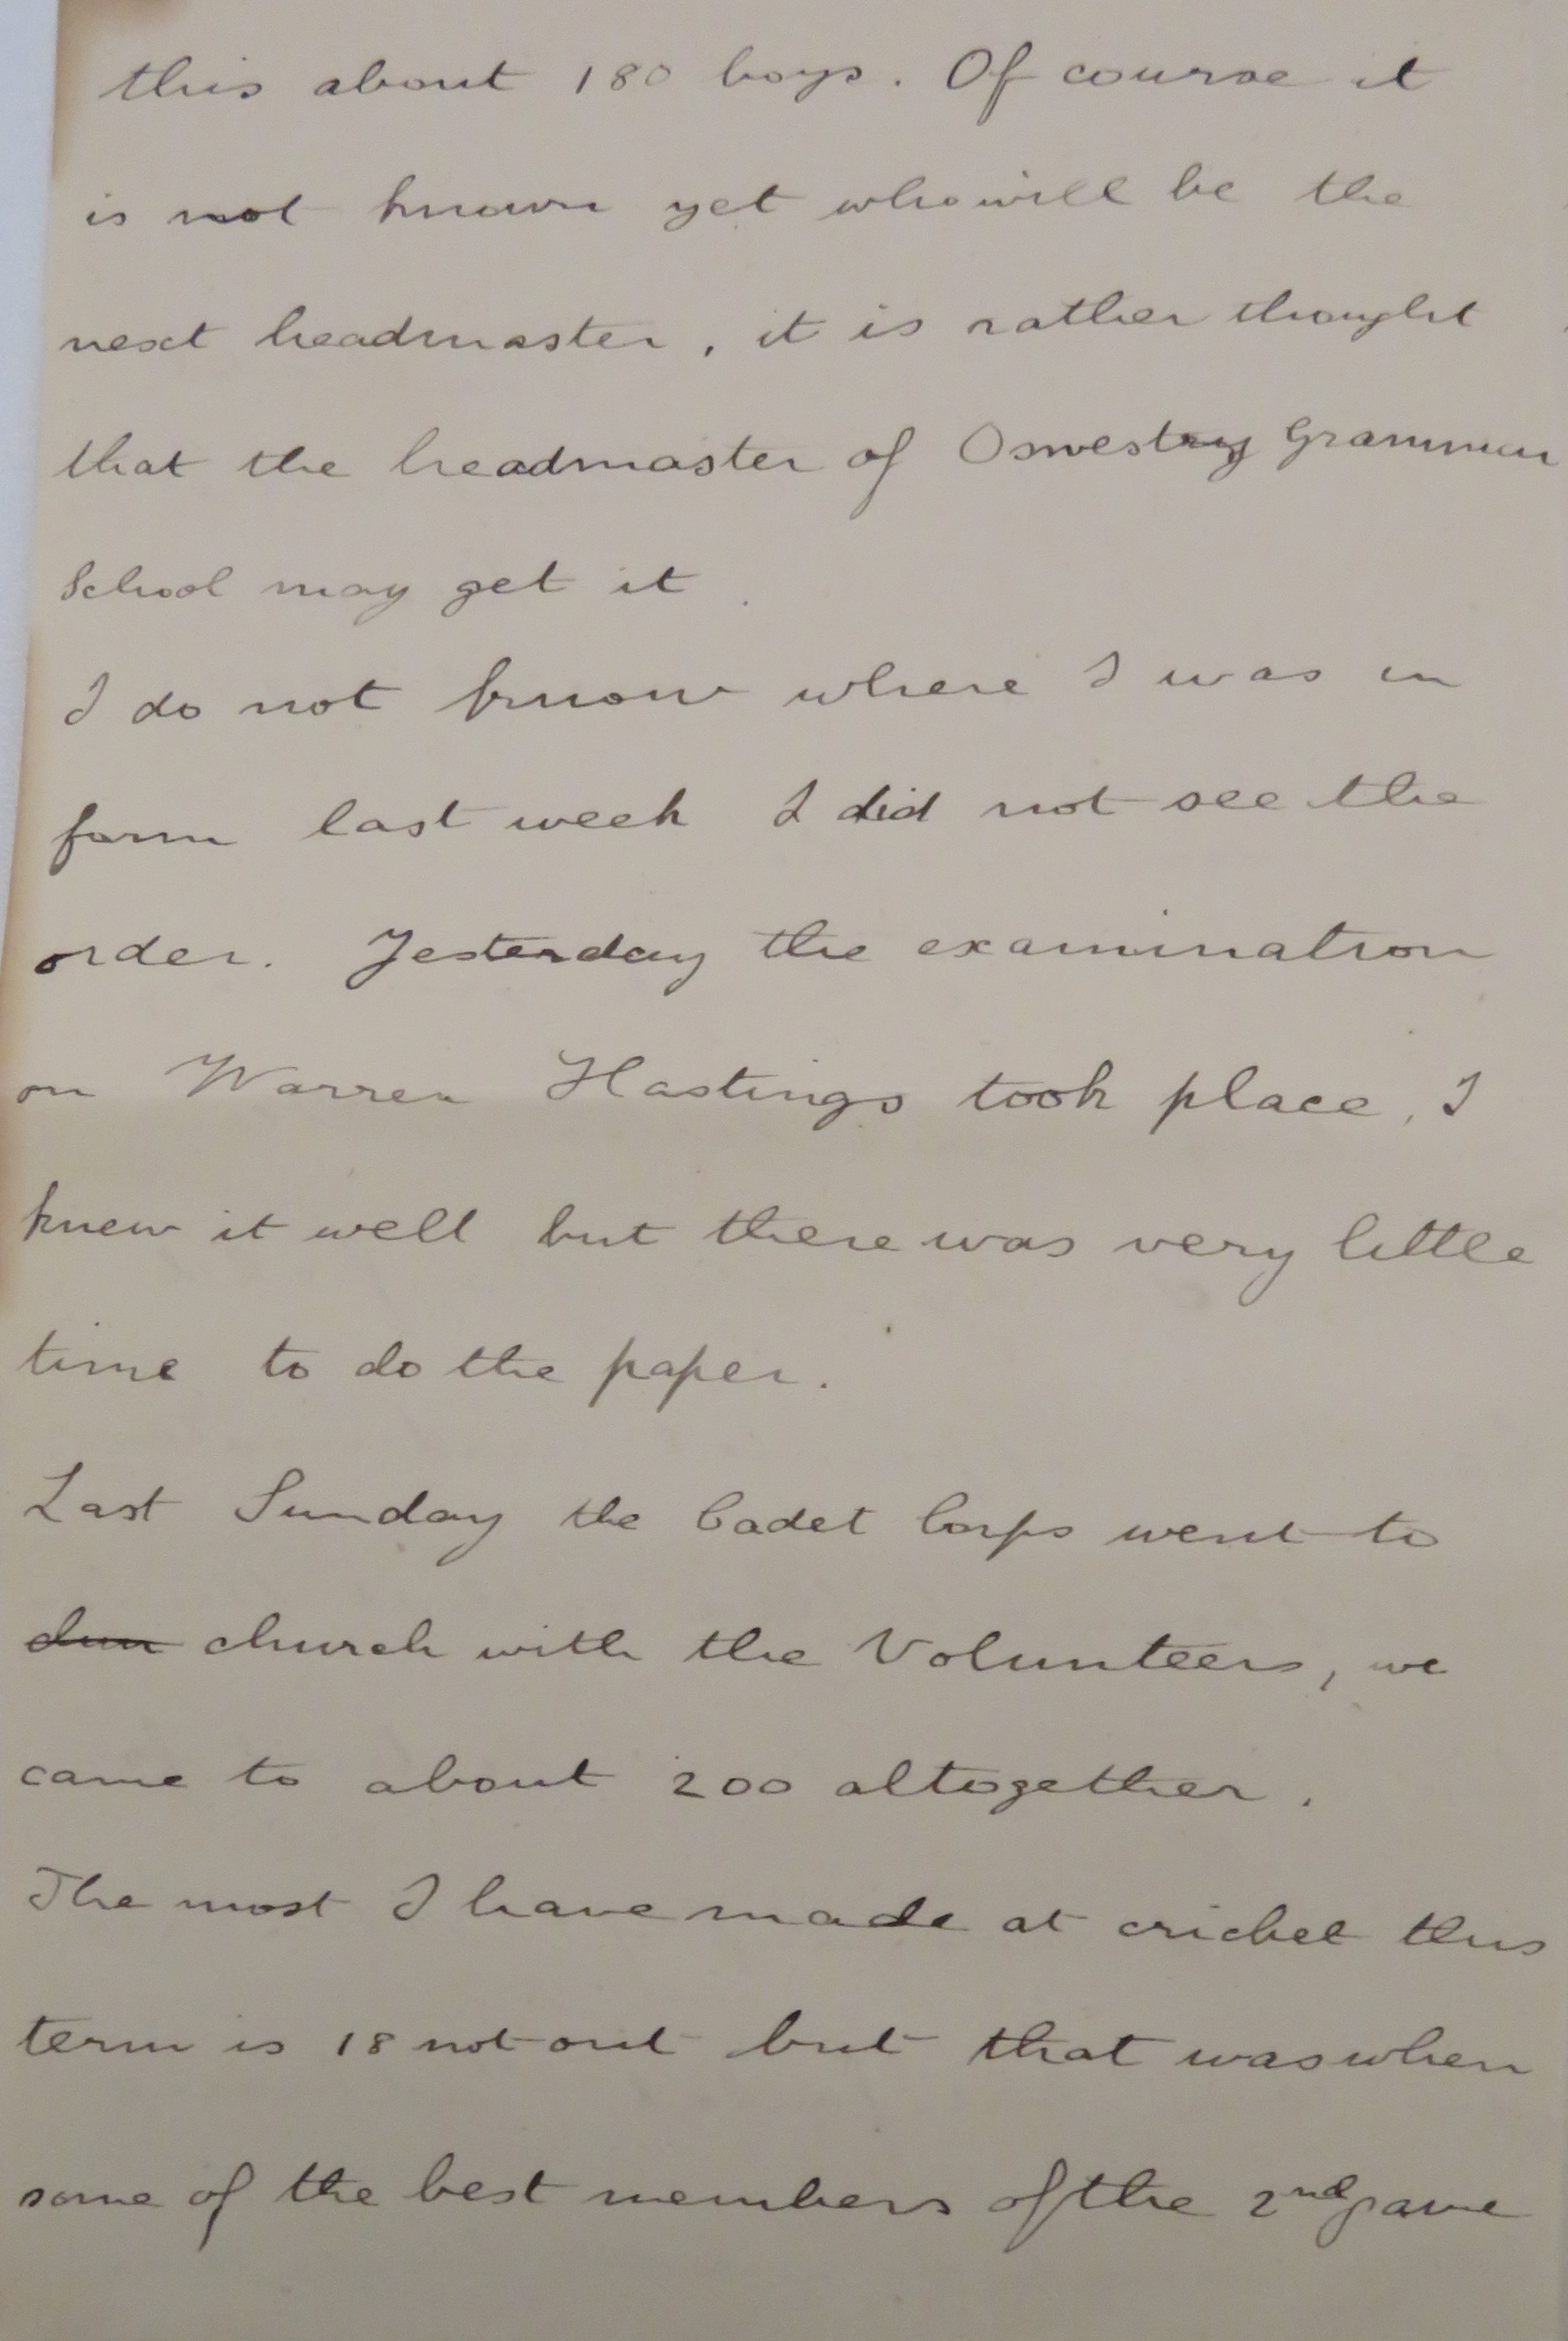 this about 180 boys. Of course it
is not known yet who will be the
next headmaster, it is rather thought
that the headmaster of Oswestry Grammar
School may get it.
I do not know where I was in
form last week I did not see the
order. Yesterday the examination
on Warren Hastings took place, I
knew it well but there was very little
time to do the paper.
Last Sunday the Cadet Corps went to
chur church with the Volunteers, we
came to about 200 altogether.
The most I have made at cricket this
term is 18 not out but that was when
some of the best members of the 2nd game